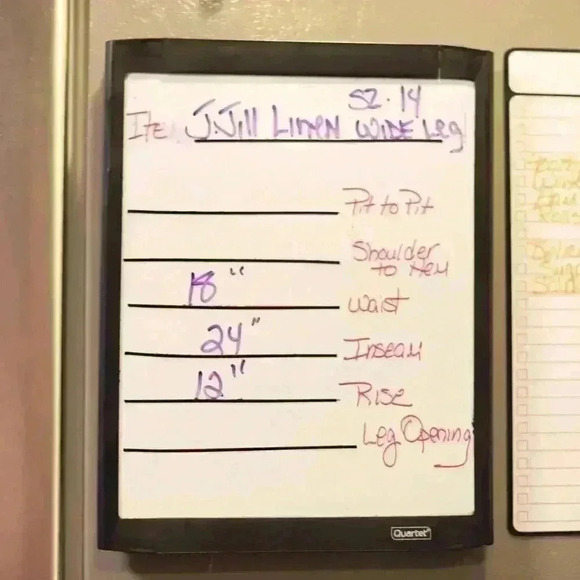 SZ. 14
Ite J.Jill Linen WIDE Leg
Pit to Pit
Shoulder
to Hem
18" Waist
24" Inseam
12" Rise
Leg Opening
Quartet